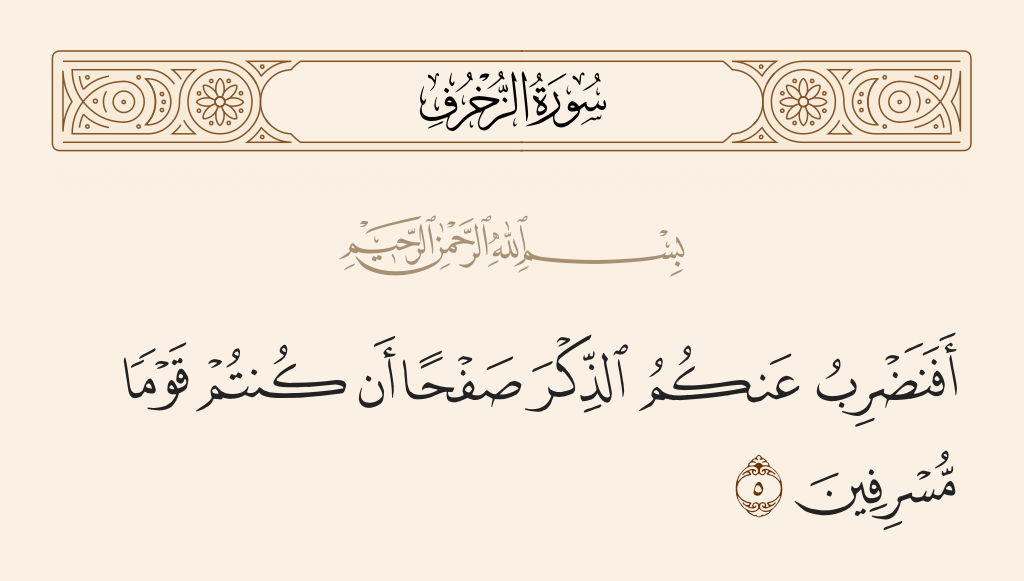 سُورَةُ الزُّخْرُفِ
بِسْمِ ٱللَّهِ ٱلرَّحْمَٰنِ ٱلرَّحِيمِ
أَفَنَضْرِبُ عَنكُمُ ٱلذِّكْرَ صَفْحًا أَن كُنتُمْ قَوْمًا
مُّسْرِفِينَ ٥